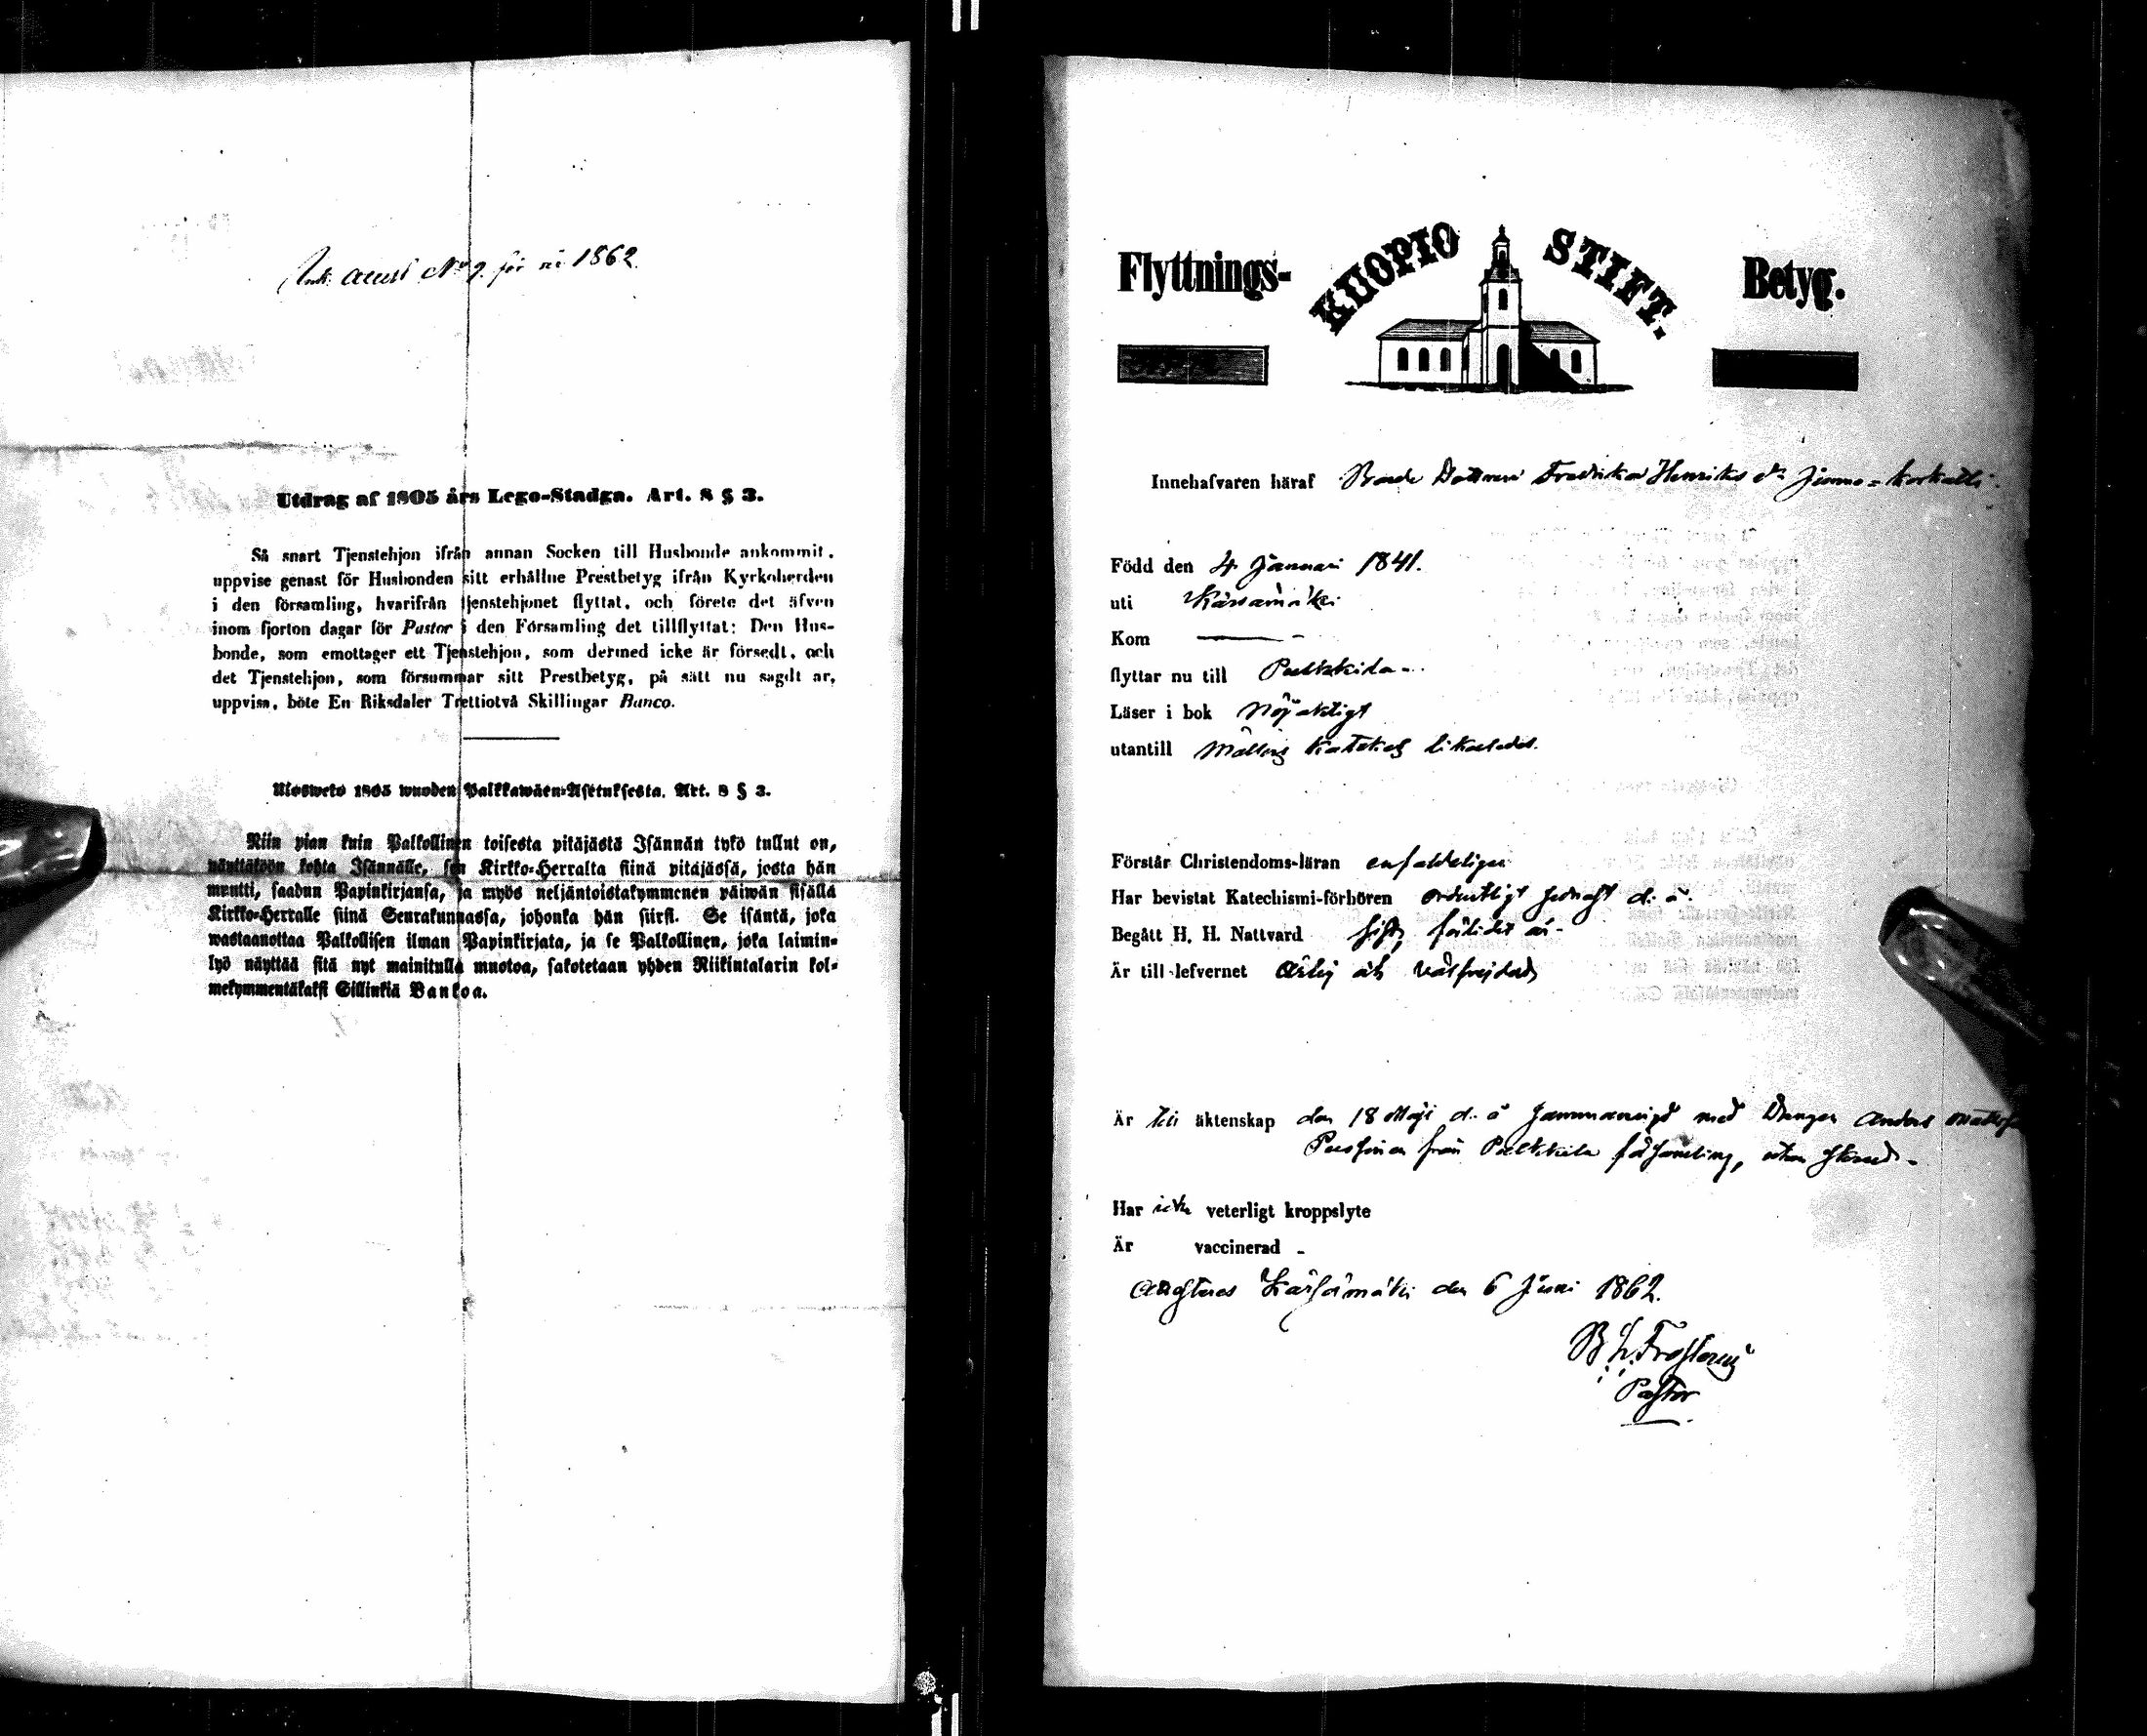 attest No 9. för år 1862
Utdrag af 1805 års Lego-Stadga. Art. 8 § 3.
Så snart Tjenstehjon ifrån annan Socken till Husbonde ankommit,
uppvise genast för Husbonden sitt erhållne Prestbetyg ifrån Kyrkoherden
i den församling, hvarifrån tjenstehjonet flyttat, och förete det äfven
inom fjorton dagar för Pastor i den Församling det tillflyttat: Den Hus-
bonde, som emottager ett Tjenstehjon, som dermed icke är försedt, och
det Tjenstehjon, som försummar sitt Prestbetyg, på sätt nu sagdt är,
uppvisa, böte En Riksdaler Trettiotvå Skillingar Banco.
Ulosweto 1805 wuoden Palkkawäen-Asetuksesta. Art. 8 § 3.
Niin pian kuin Palkollinen toisesta pitäjästä Isännän tykö tullut on,
näyttäköön kohta Isännälle, sen Kirkko-Herralta siinä pitäjässä, josta hän
muutti, saadun Papinkirjansa, ja myös neljäntoistakymmenen päiwän sisällä
Kirkko-Herralle siinä Seurakunnassa, johonka hän siirsi. Se isäntä, joka
wastaanottaa Palkollisen ilman Papinkirjata, ja se Palkollinen, joka laimin-
lyö näyttää sitä nyt mainitulla muotoa, sakotetaan yhden Riikintalarin kol-
mekymmentäkaksi Sillinkiä Bankoa.
Flyttnings- KUOPIO STIFT. Betyg.
Innehafvaren häraf Bonde Dottren Fredrika Henriks dr Junno-korkatti.
Född den 4 Januari 1841.
uti Kärsämäki
Kom —
flyttar nu till Pulkkila.
Läser i bok Nöjaktigt
utantill Möllers Kateches likaledes.
Förstår Christendoms-läran enfaldeligen
Har bevistat Katechismi-förhören ordentligt sednast d. å.
Begått H. H. Nattvard sist, förlidet år.
Är till lefvernet ärlig och välfrejdad
Är till äktenskap den 18 Maji d. å sammanvigd med Drengen Anders
från Pulkkila församling, utan
Har icke veterligt kroppslyte
Är vaccinerad -
attesteras Kärsämäki den 6 Juni 1862.
B. L. Frosterus
Pastor